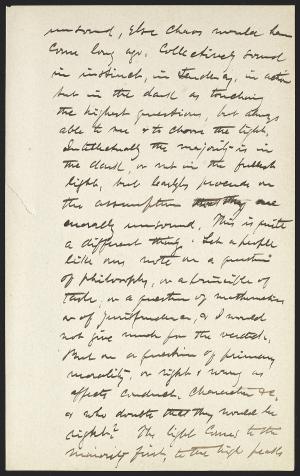 unsound, else Chaos would have
come long ago. Collectively sound
in instinct, in tendency, in action
but in the dark as touching
the highest questions, but always
able to see & to choose the light.
Intellectually the majority is in
the dark, or not in the fullest
light, but leads proceeds on
the assumption that they are
morally unsound. This is quite
a different thing. Let a people
like ours vote on a question
of philosophy, or a principle of
taste, or a question of mathematics
or of jurisprudence, & I would
not give much for the verdict.
But on a question of primary
morality, or right & wrong as
affects conduct, character &c,
as who doubts that they would be
right? The light comes to the
minority first, to the high peaks